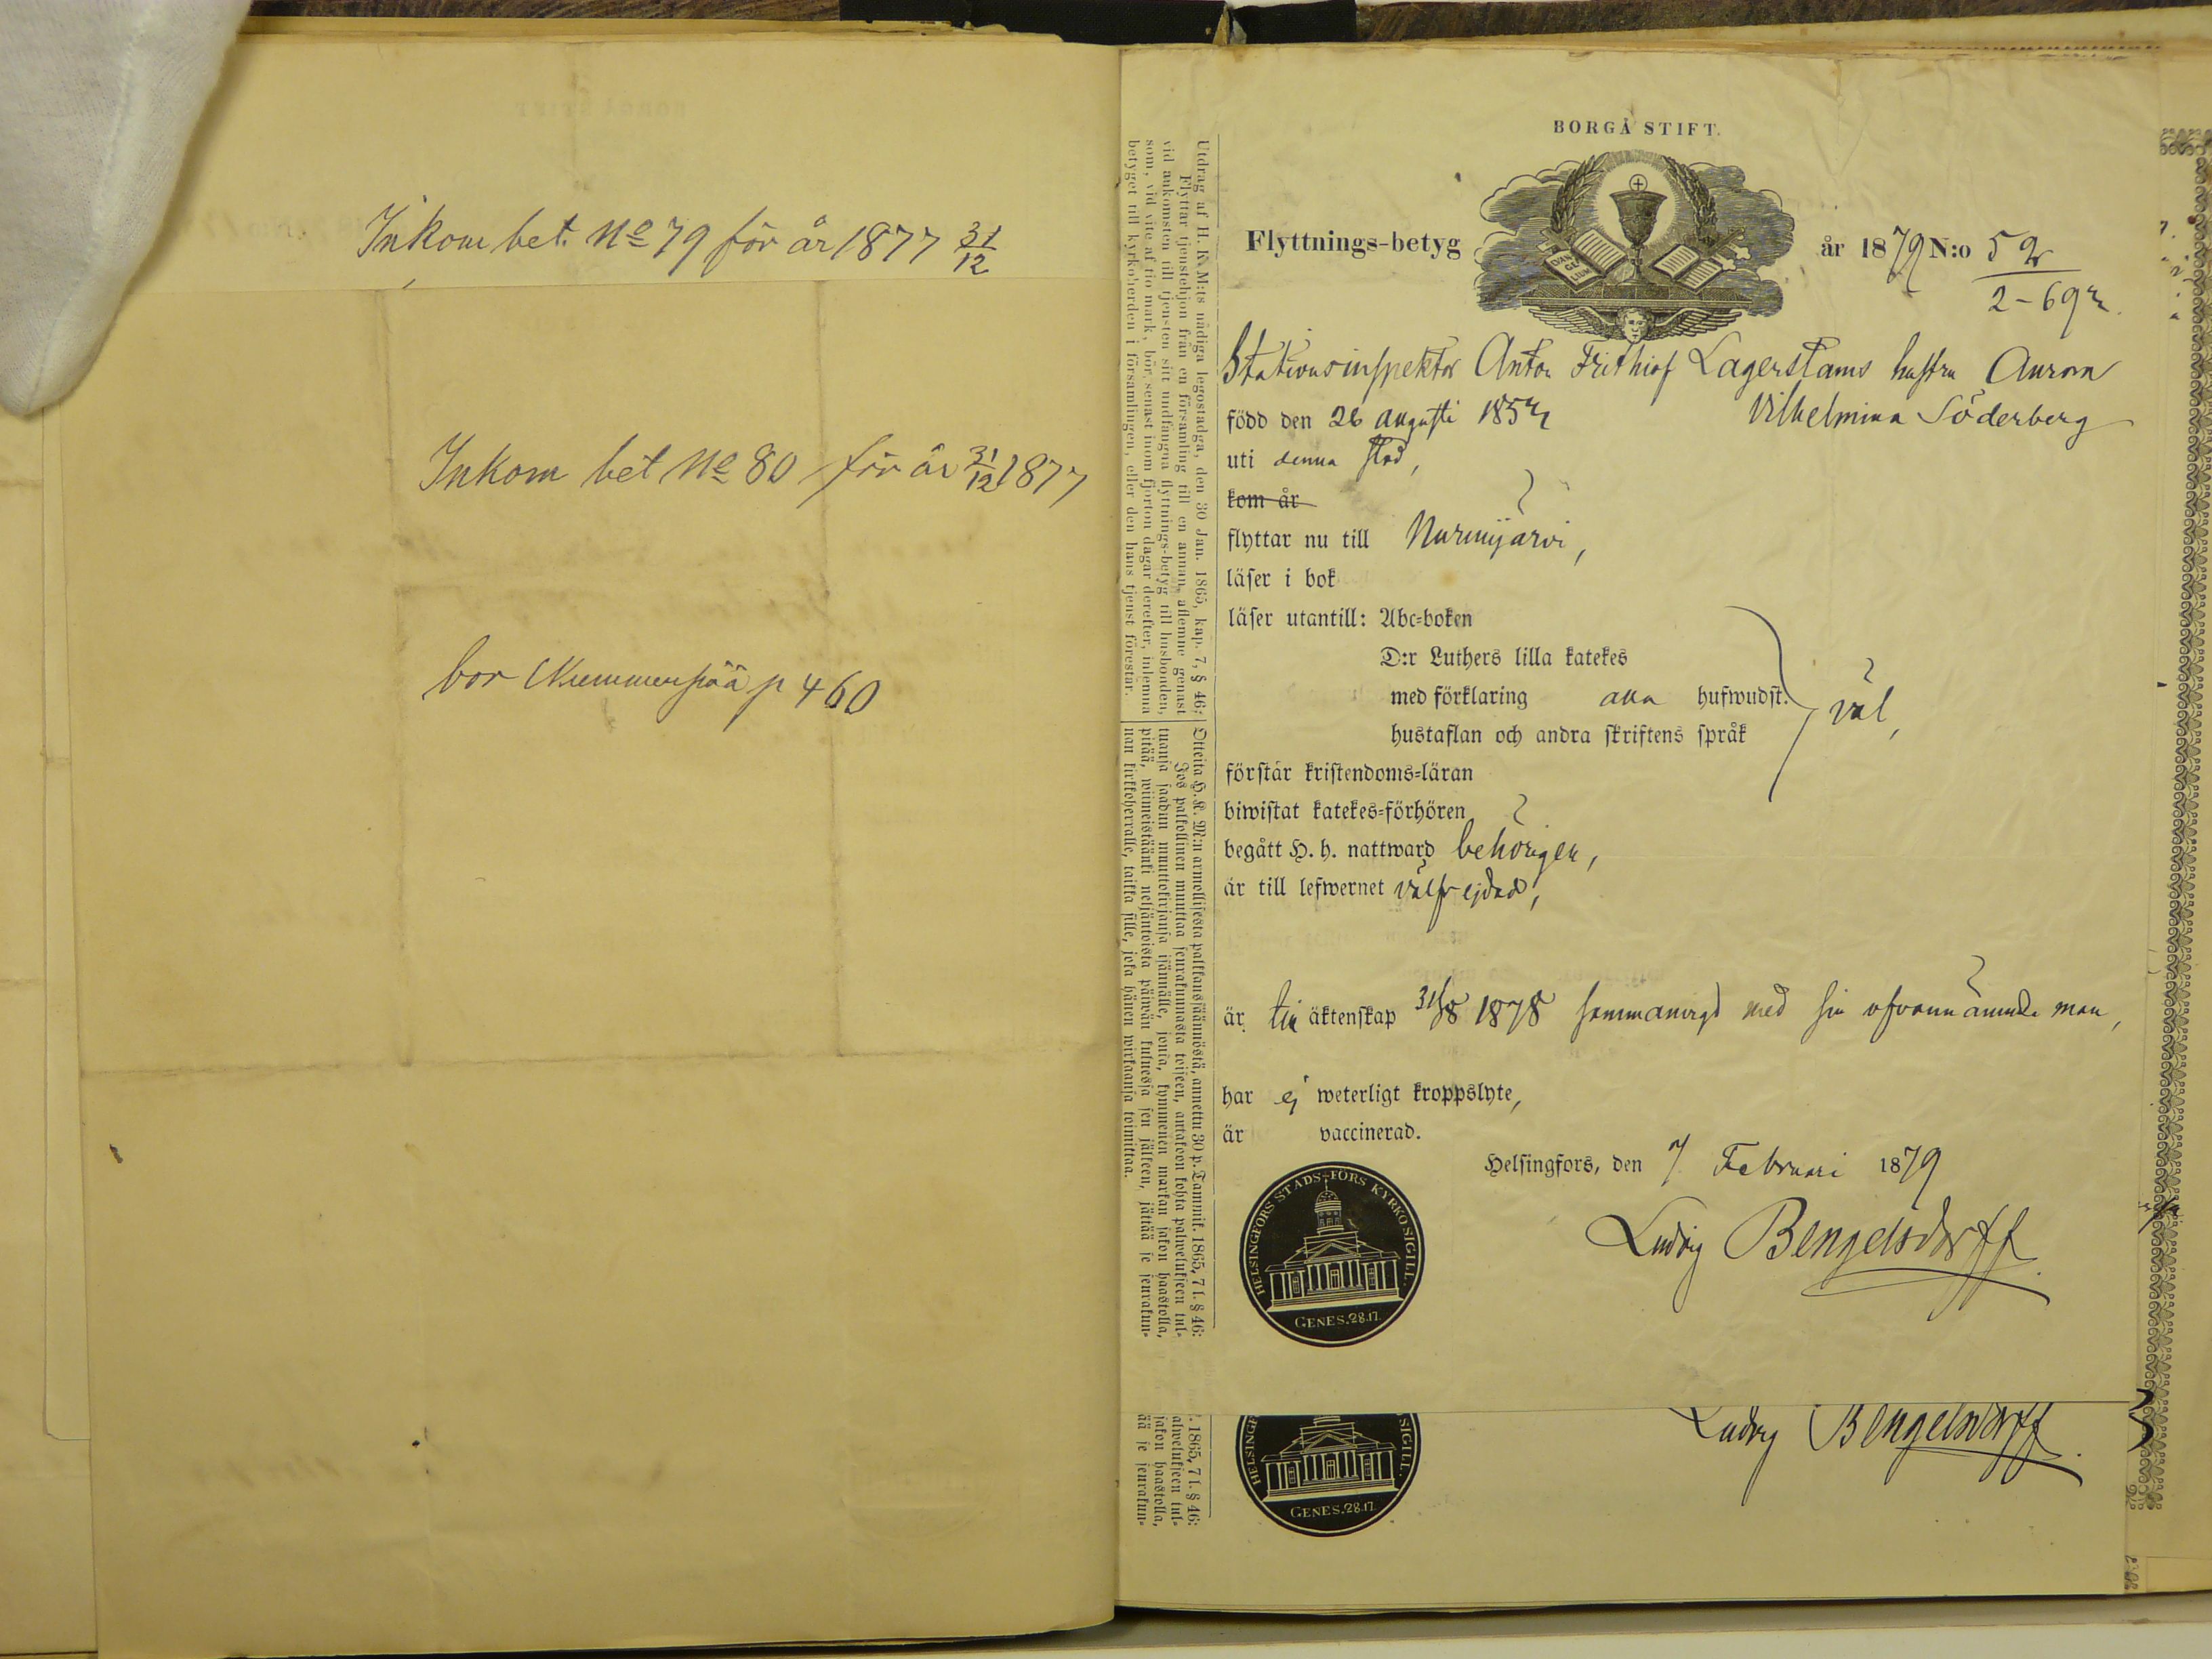 Inkom bet. No 79 för år 1877 31/12
Inkom bet No 80 för år 31/12 1877
bor Nummenpää p 460
BORGÅ STIFT.
Flyttnings-betyg
EVAN
GE
LIUM
år 1879 N:o 52
2-69
Stationsinspektor Anton Frithiof Lagerstams hustru Aurora
Vilhelmina Söderberg
född den 26 augusti 185
uti denna stad,
kom år
flyttar nu till Nurmijärvi,
läser i bok
läser utantill: Abc-boken
D:r Luthers lilla katekes
med förklaring alla hufwudst.
hustaflan och andra skriftens språk
väl,
förstår kristendoms-läran
biwistat katekes-förhören
begått H. h. nattward behörigen,
är till lefwernet välfrejdad,
är till äktenskap 31/8 1878 sammanvigd med sin ofvannämnde man,
har ej weterligt kroppslyte,
är vaccinerad.
Helsingfors, den 7 Februari 1879
Ludvig Bengelsdorff
HELSINGFORS STADS-FÖRS KYRKO SIGILL.
GENES. 28.17.
Utdrag af H. K. M:ts nådiga legostadga, den 30 Jan. 1865, kap. 7, § 46:
Flyttar tjenstehjon från en församling till en annan, aflemne genast
vid ankomsten till tjensten sitt undfångna flyttnings-betyg till husbonden,
som, vid vite af tio mark, bör, senast inom fjorton dagar derefter, inlemna
betyget till kyrkoherden i församlingen, eller den hans tjenst förestår.
Otteita H. K. M:n armollisesta palkkaussäännöstä, annettu 30 p. Tammik. 1865, 7 l. § 46:
Jos palkollinen muuttaa seurakunnasta toiseen, antakoon kohta palwelukseen tul-
tuansa saadun muuttokirjansa isännälle, jonka, kymmenen markan sakon haastolla,
pitää, wiimeistäänki neljäntoista päiwän kuluessa sen jälkeen, jättää se seurakun-
nan kirkkoherralle, taikka sille, joka hänen wirkaansa toimittaa.
Ludvig Bengelsdorff
HELSINGF
SIGILL.
GENES. 28.17.
. 1865, 7 l. § 46:
alwelukseen tul-
sakon haastolla,
ää se seurakun-